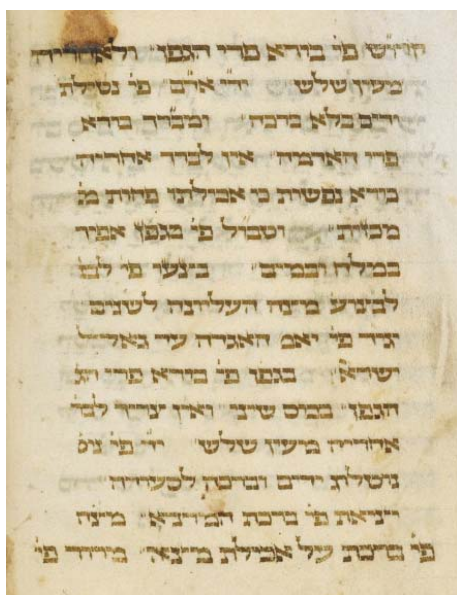 קידוש פי׳ בורא פרי הגפן ולאחריה
מעין שלש פי׳ נטילת
ידים בלא ברכה ומברך בורא
פרי האדמה אין לברך אחריה
בורא נפשות כי אכילתו פחות מ׳
מכזית וטבול פי׳
במלח ובמים פי׳ לבצ׳
לבצוע מיצה העליונה לשנים
יגיד פי׳ יאמ׳ האגדה עד גאל
ישרא׳ בגפן פי׳ בורא פרי הג׳
הגפן בכוס שיני ואין צריך לבר׳
אחריה מעין שלש פי׳ נוט׳
נוטלת ידים וברכת לסעודה
יציאת פי׳ ברכת המוציא מיצה
פי׳ ברכת על אכילת מיצה מרור פי׳